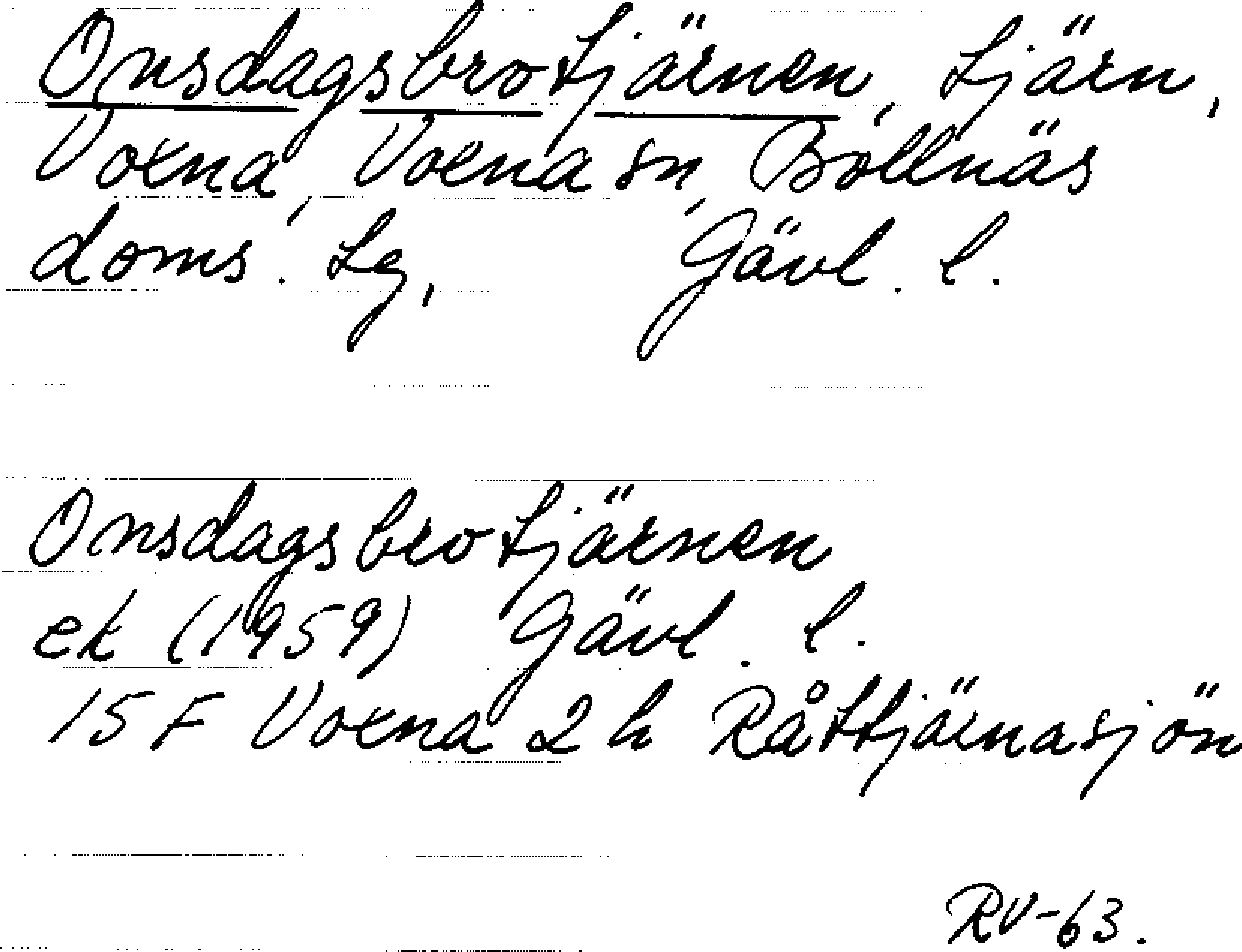 Onsdagsbrotjärnen, tjärn,
Voxna, Voxna sn, Bollnäs
doms. lg, Gävl. l.
Onsdagsbrotjärnen
ek (1959) Gävl. l.
15 F Voxna 2 h Råttjärnasjön
RV-63.